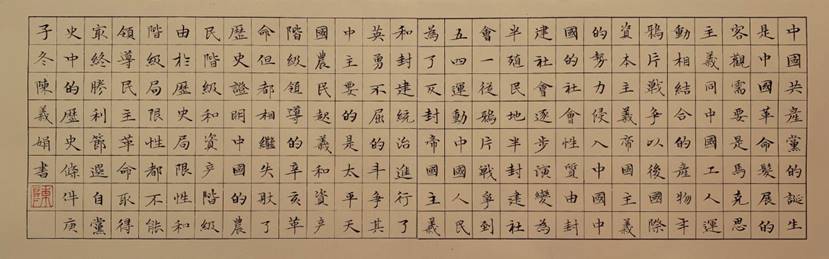 中國共產黨的誕生
是中國革命發展的
客觀需要是馬克思
主義同中國工人運
動相結合的產物年
鴉片戰争以後國際
資本主義帝國主義
的勢力侵入中國中
國的社會性質由封
建社會逐步演變為
半殖民地半封建社
會一從鴉片戰爭到
五四運動中國人民
為了反封帝國主義
和封建統治進行了
英勇不屈的斗争其
中主要的是太平天
國農民起義和資产
階級領導的辛亥革
命但都相繼失敗了
歷史證明中國的農
民階級和資产階級
由於歷史局限性和
階級局限性都不能
領導民主革命取得
最終勝利節選自黨
史中的歷史條件庚
子冬陳義娟書